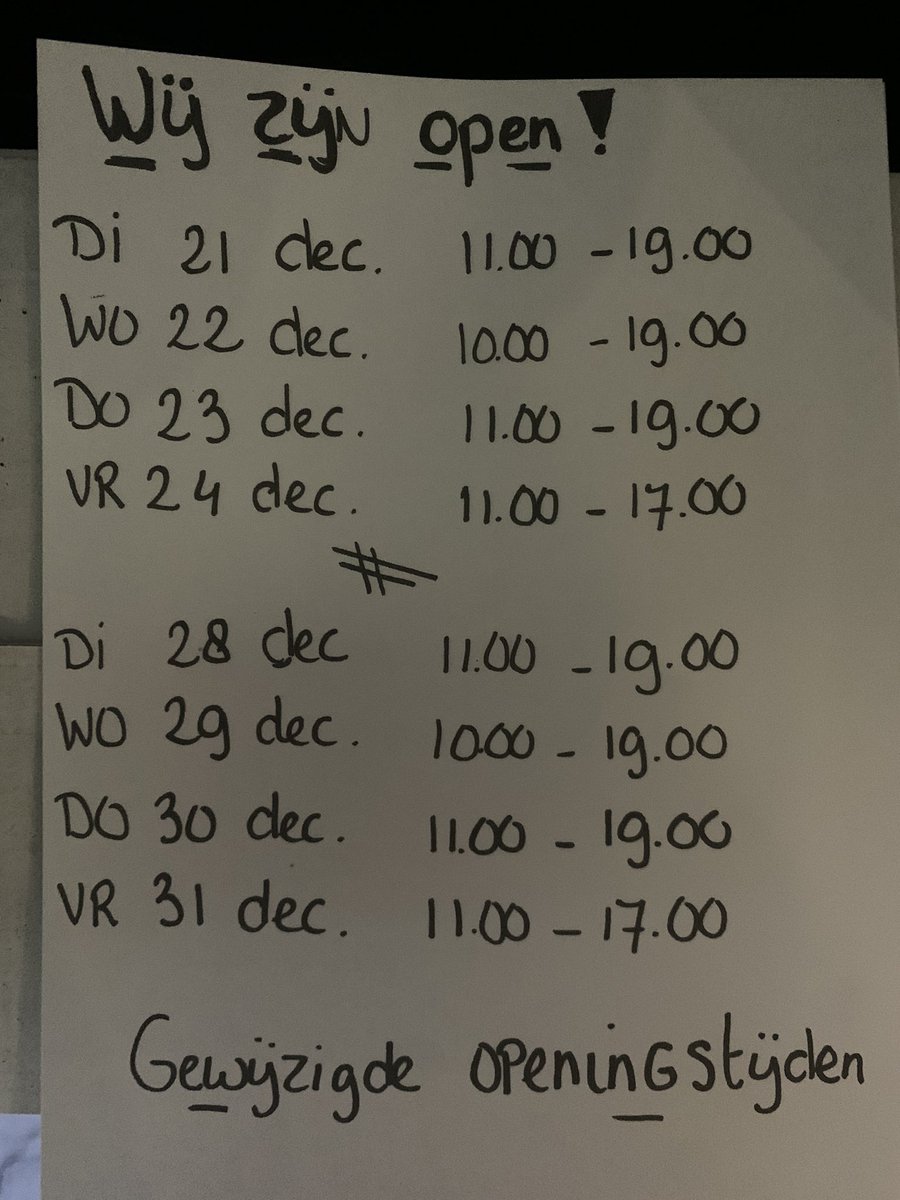 Wij zijn open!
Di 21 dec. 11.00 - 19.00
WO 22 dec. 10.00 - 19.00
DO 23 dec. 11.00 - 19.00
VR 24 dec. 11.00 - 17.00
Di 28 dec 11.00 - 19.00
WO 29 dec. 10.00 - 19.00
DO 30 dec. 11.00 - 19.00
VR 31 dec. 11.00 - 17.00
Gewijzigde openingstijden